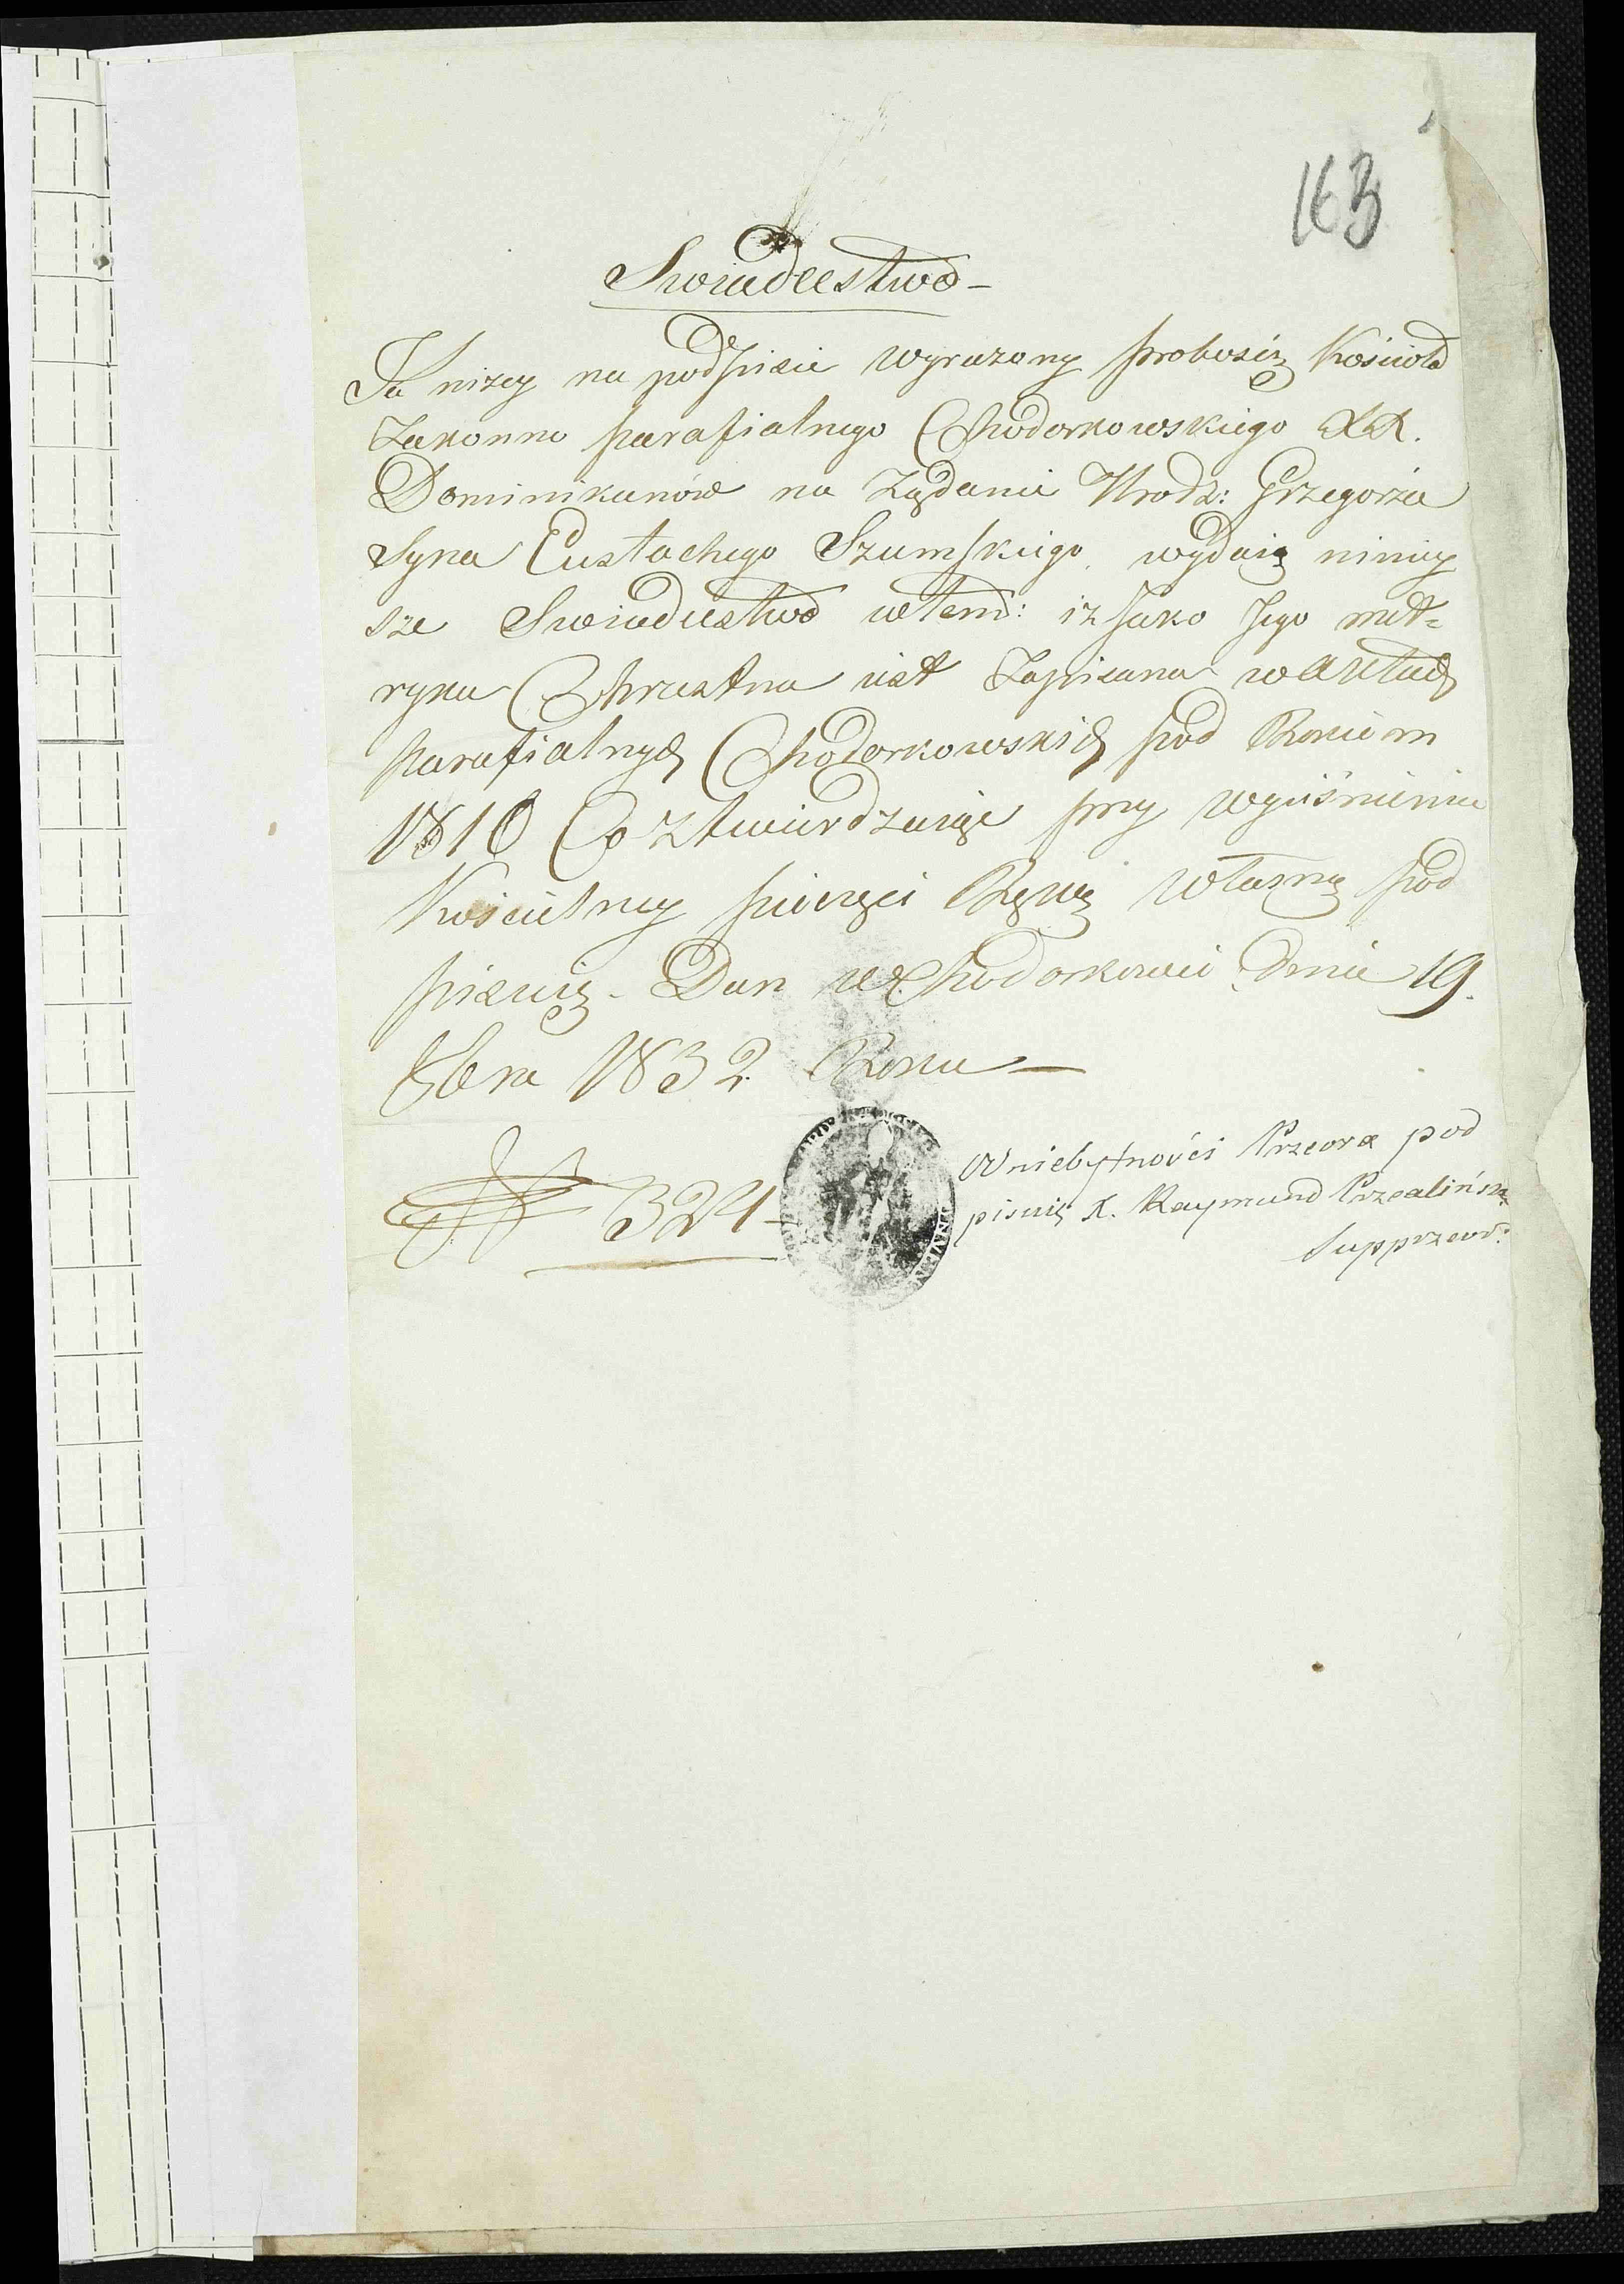 163
Swiadectwo -
Ja nizey na podpisie wyrazony proboszcz Kościoła
Zakonno parafialnego Chodorkowskiego XX.
Dominikanów na Ządanie Urodz: Grzegorza
Syna Eustachego Szumskiego wydaię niniey
sze Swiadectwo wtem: iz Jako Jego met=
ryka Chrzestna iest Zapisana w aktach
parafialnych Chodorkowskich pod Rokiem
1810 Co ztwierdzaiąc przy wyciśnieniu
Kościelney pieczęci Ręką własną pod
pisuię - Dan w Chodorkowie dnia 19.
8bra 1832 Roku -
324 -
W niebytności Przeora pod
pisuię X. Raymund
Supprzeor.